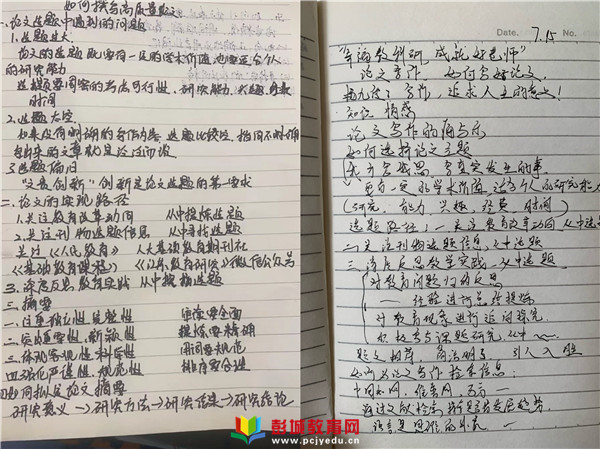 如何撰写高质量论文
一、论文选题中遇到的问题
1.选题过大
论文的选题既要有一定的学术价值,也要适合个人
的研究能力
选题要周密的考虑可行性、研究能力、兴趣、经费
时间
2.选题太空
如果没有明确的写作内容,选题比较空,指向不明确
写出来的文章就是泛泛而谈
3.选题陈旧
“文贵创新”创新是论文选题的第一要求
二、论文的实现路径
1.关注教育改革动向 从中提炼选题
2.关注刊物选题信息 从中寻找选题
关注《人民教育》 人大基础教育期刊社
《基础教育课程》 微信公众号
3.深度反思教育实践 从中提炼选题
三、摘要
一、注重独立性、完整性 语读要全面
二、突出重要性、新颖性 提炼要精确
三、体现客观性、科学性 用词要规范
四、强化严谨性、规范性 排序要合适
四)如何拟定论文摘要
研究意义→研究方法→研究结果→研究结论
Date. 7.15 No.
“幸福教科研 成就好老师”
论文写作,如何写好论文,
追求人生的意义!
知识 情感
论文写作的痛与乐
如何选择论文主题
要有一定的学术价值,适合个人的研究能力
(研究、能力、兴趣、经费、时间)
选题路径:一、关注教育改革动向,从中选题
二、关注刊物选题信息,从中选题
三、深度反思教学实践,从中选题
对教育问题归因反思
——经验进行品质提炼
对教育现象进行追问探究
积极参与课题研究,从中
简洁明了,引人入胜
如何为论文写作检索信息:
中国知网,维普网,万方
语言是思维的外壳
彭城教育网
www.pcjyedu.cn